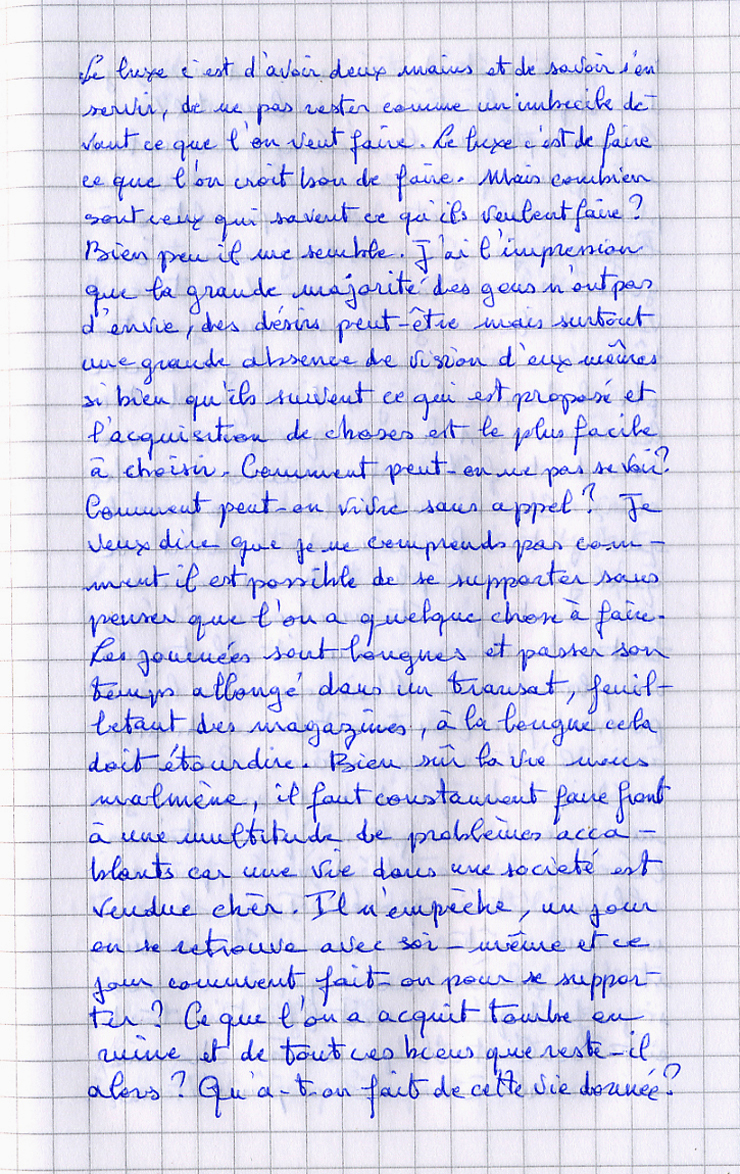 Le luxe c'est d'avoir deux mains et de savoir s'en
servir, de ne pas rester comme un imbecile de-
vant ce que l'on veut faire. Le luxe c'est de faire
ce que l'on croit bon de faire. Mais combien
sont ceux qui savent ce qu'ils veulent faire ?
Bien peu il me semble. J'ai l'impression
que la grande majorité des gens n'ont pas
d'envie, des désirs peut-être mais surtout
une grande absence de vision d'eux mêmes
si bien qu'ils suivent ce qui est proposé et
l'acquisition de choses est le plus facile
à choisir. Comment peut-on ne pas se voir ?
Comment peut-on vivre sans appel ? Je
veux dire que je ne comprends pas com-
ment il est possible de se supporter sans
penser que l'on a quelque chose à faire.
Les journées sont longues et passer son
temps allongé dans un transat, feuil-
letant des magazines, à la longue cela
doit étourdir. Bien sûr la vie nous
malmène, il faut constamment faire front
à une multitude de problèmes acca-
blants car une vie dans une société est
vendue chèr. Il n'empêche, un jour
on se retrouve avec soi-même et ce
jour comment fait-on pour se suppor-
ter ? Ce que l'on a acquit tombe en
ruine et de tout ces biens que reste-il
alors ? Qu'a-t-on fait de cette vie donnée ?